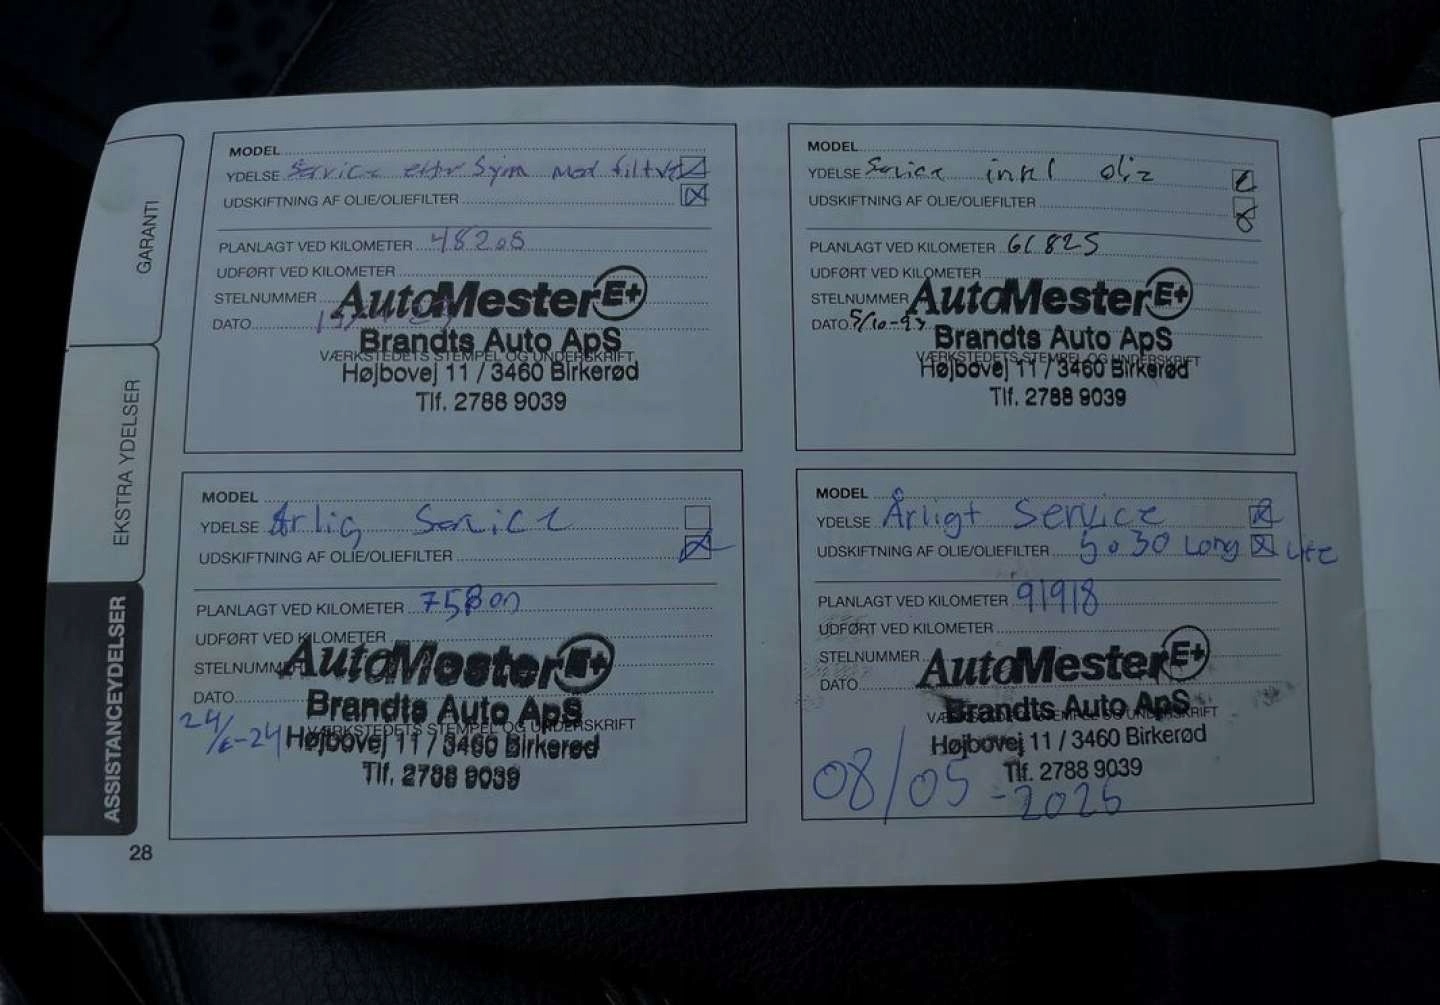 GARANTI
EKSTRA YDELSER
ASSISTANCEYDELSER
MODEL
YDELSE Service efter Sym med filtre
UDSKIFTNING AF OLIE/OLIEFILTER
PLANLAGT VED KILOMETER 48205
UDFØRT VED KILOMETER
STELNUMMER
DATO
AutoMester E+
Brandts Auto ApS
VÆRKSTEDETS STEMPEL OG UNDERSKRIFT
Højbovej 11 / 3460 Birkerød
Tlf. 2788 9039
MODEL
YDELSE Service inkl olie
UDSKIFTNING AF OLIE/OLIEFILTER
PLANLAGT VED KILOMETER
UDFØRT VED KILOMETER
STELNUMMER
DATO 5/10-23
AutoMester E+
Brandts Auto ApS
VÆRKSTEDETS STEMPEL OG UNDERSKRIFT
Højbovej 11 / 3460 Birkerød
Tlf. 2788 9039
MODEL
YDELSE Årlig Service
UDSKIFTNING AF OLIE/OLIEFILTER
PLANLAGT VED KILOMETER
UDFØRT VED KILOMETER
STELNUMMER
DATO
24/6-24
AutoMester E+
Brandts Auto ApS
VÆRKSTEDETS STEMPEL OG UNDERSKRIFT
Højbovej 11 / 3460 Birkerød
Tlf. 2788 9039
MODEL
YDELSE Årligt Service
UDSKIFTNING AF OLIE/OLIEFILTER 5.30 Long Life
PLANLAGT VED KILOMETER 91918
UDFØRT VED KILOMETER
STELNUMMER
DATO
AutoMester E+
Brandts Auto ApS
VÆRKSTEDETS STEMPEL OG UNDERSKRIFT
Højbovej 11 / 3460 Birkerød
Tlf. 2788 9039
08/05-2025
28